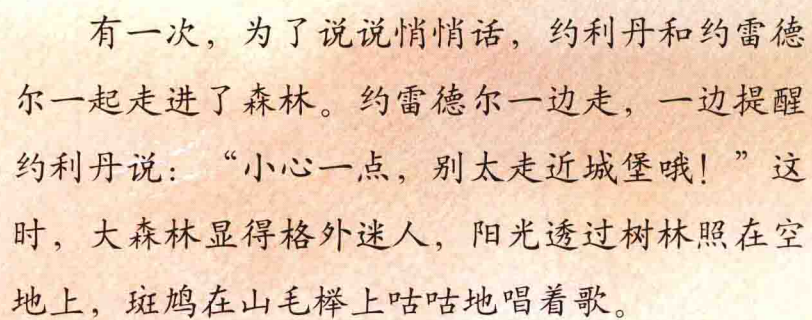 有一次，为了说说悄悄话，约利丹和约雷德
尔一起走进了森林。约雷德尔一边走，一边提醒
约利丹说：“小心一点，别太走近城堡哦！”这
时，大森林显得格外迷人，阳光透过树林照在空
地上，斑鸠在山毛榉上咕咕地唱着歌。